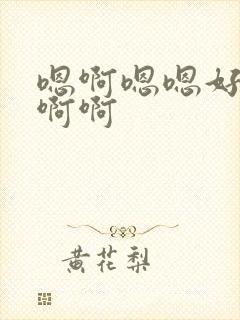 嗯啊嗯嗯好
啊啊
黄花梨